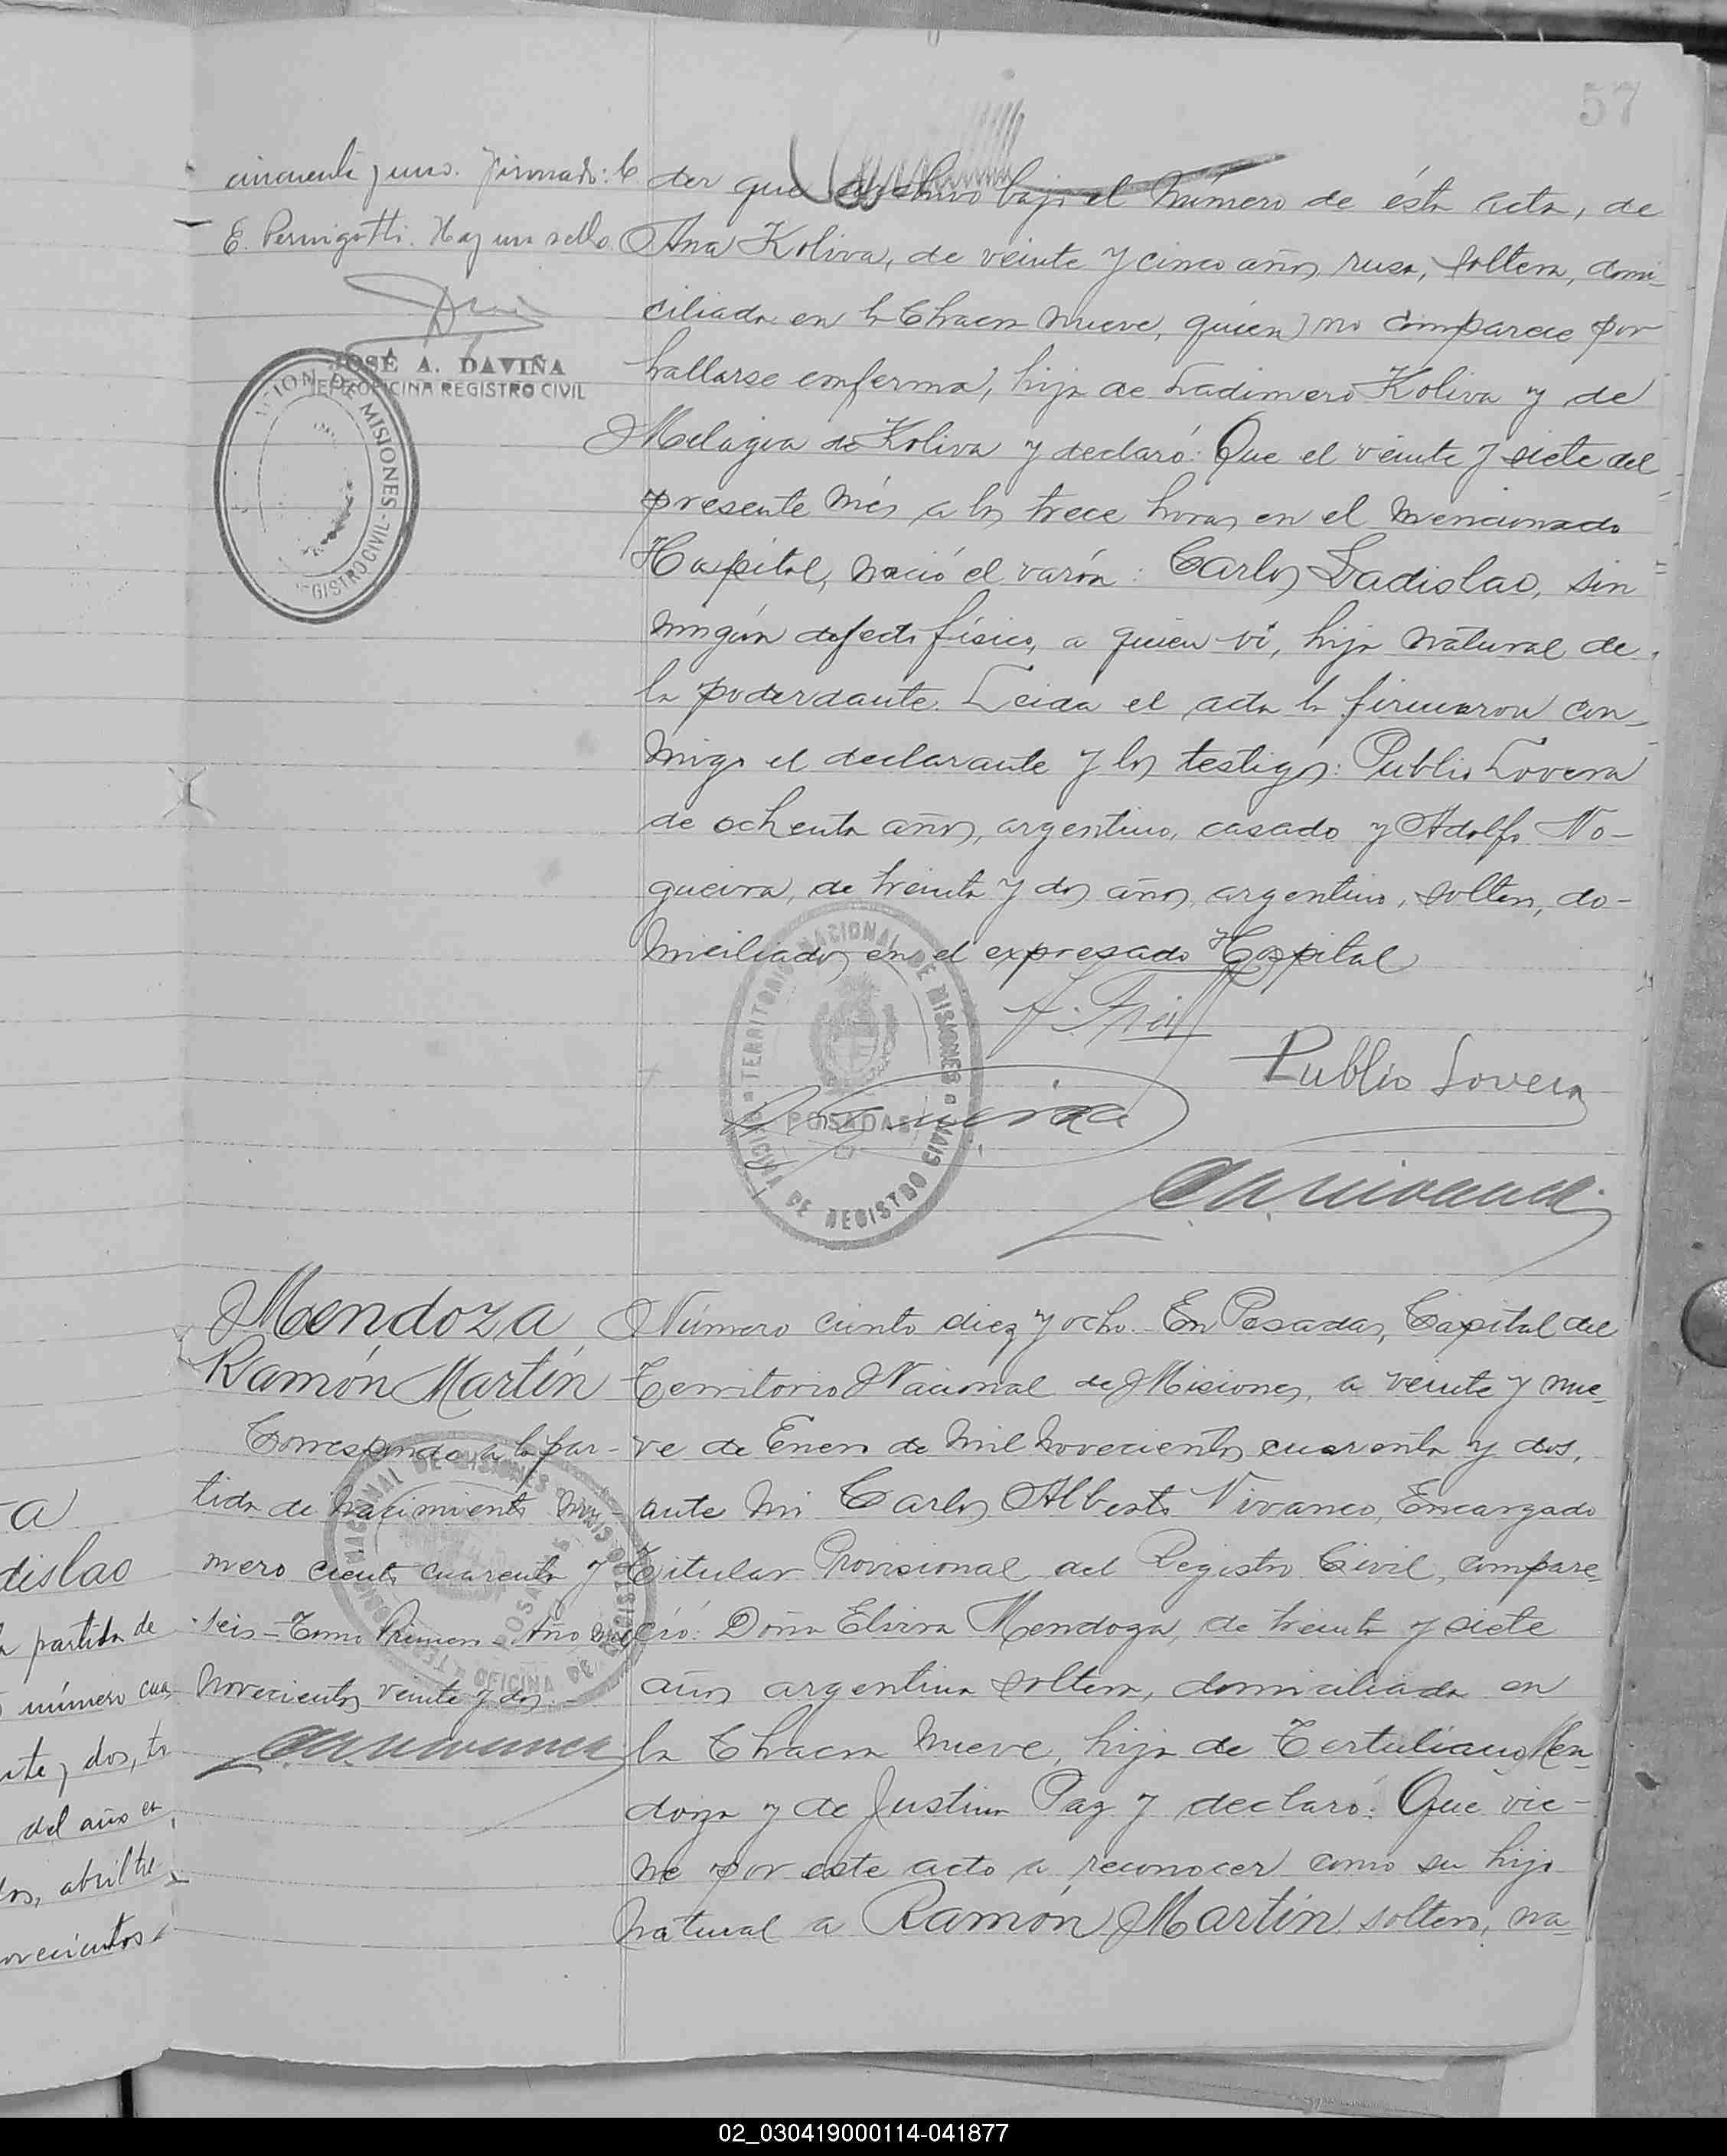 57
cincuenta y uno. Firmado: C.
E. Pernigotti. Hay un sello.
JOSÉ A. DAVIÑA
JEFE OFICINA REGISTRO CIVIL
DE MISIONES
REGISTRO CIVIL
der que archivo bajo el número de ésta acta, de
Ana Koliva, de veinte y cinco años, rusa, soltera, domi-
ciliada en la Chacra nueve, quien no comparece por
hallarse enferma, hija de Ladimero Koliva y de
Melagia de Koliva y declaró: Que el veinte y siete del
presente més a las trece horas, en el mencionado
Hospital, nació el varón: Carlos Ladislao, sin
ningún defecto físico, a quien ví, hijo natural de
la poderdante. Leida el acta la firmaron con-
migo el declarante y los testigos: Publio Lovera
de ochenta años, argentino, casado y Adolfo No-
gueira, de treinta y dos años, argentino, soltero, do-
miciliados en el expresado Hospital
TERRITORIO NACIONAL DE MISIONES
POSADAS
OFICINA DE REGISTRO CIVIL
Publio Lovera
Mendoza
Ramón Martín
Corresponde a la par-
tida de nacimiento nú-
mero ciento cuarenta y
seis - Tomo Primero - Año mil
novecientos veinte y dos. -
Número ciento diez y ocho. En Posadas, Capital del
Territorio Nacional de Misiones, a veinte y nue-
ve de Enero de mil novecientos cuarenta y dos,
ante mi Carlos Alberto Vivanco, Encargado
Titular Provisional del Registro Civil, compare-
ció: Doña Elvira Mendoza, de treinta y siete
años argentina soltera, domiciliada en
la Chacra nueve, hija de Tertuliano Men-
doza y de Justina Paz y declaró: Que vie-
ne por este acto a reconocer como su hijo
natural a Ramón Martín, soltero, na-
a
dislao
partida de
número cua
te y dos, to
del año en
dos, abril tre
ovecientos
02_030419000114-041877